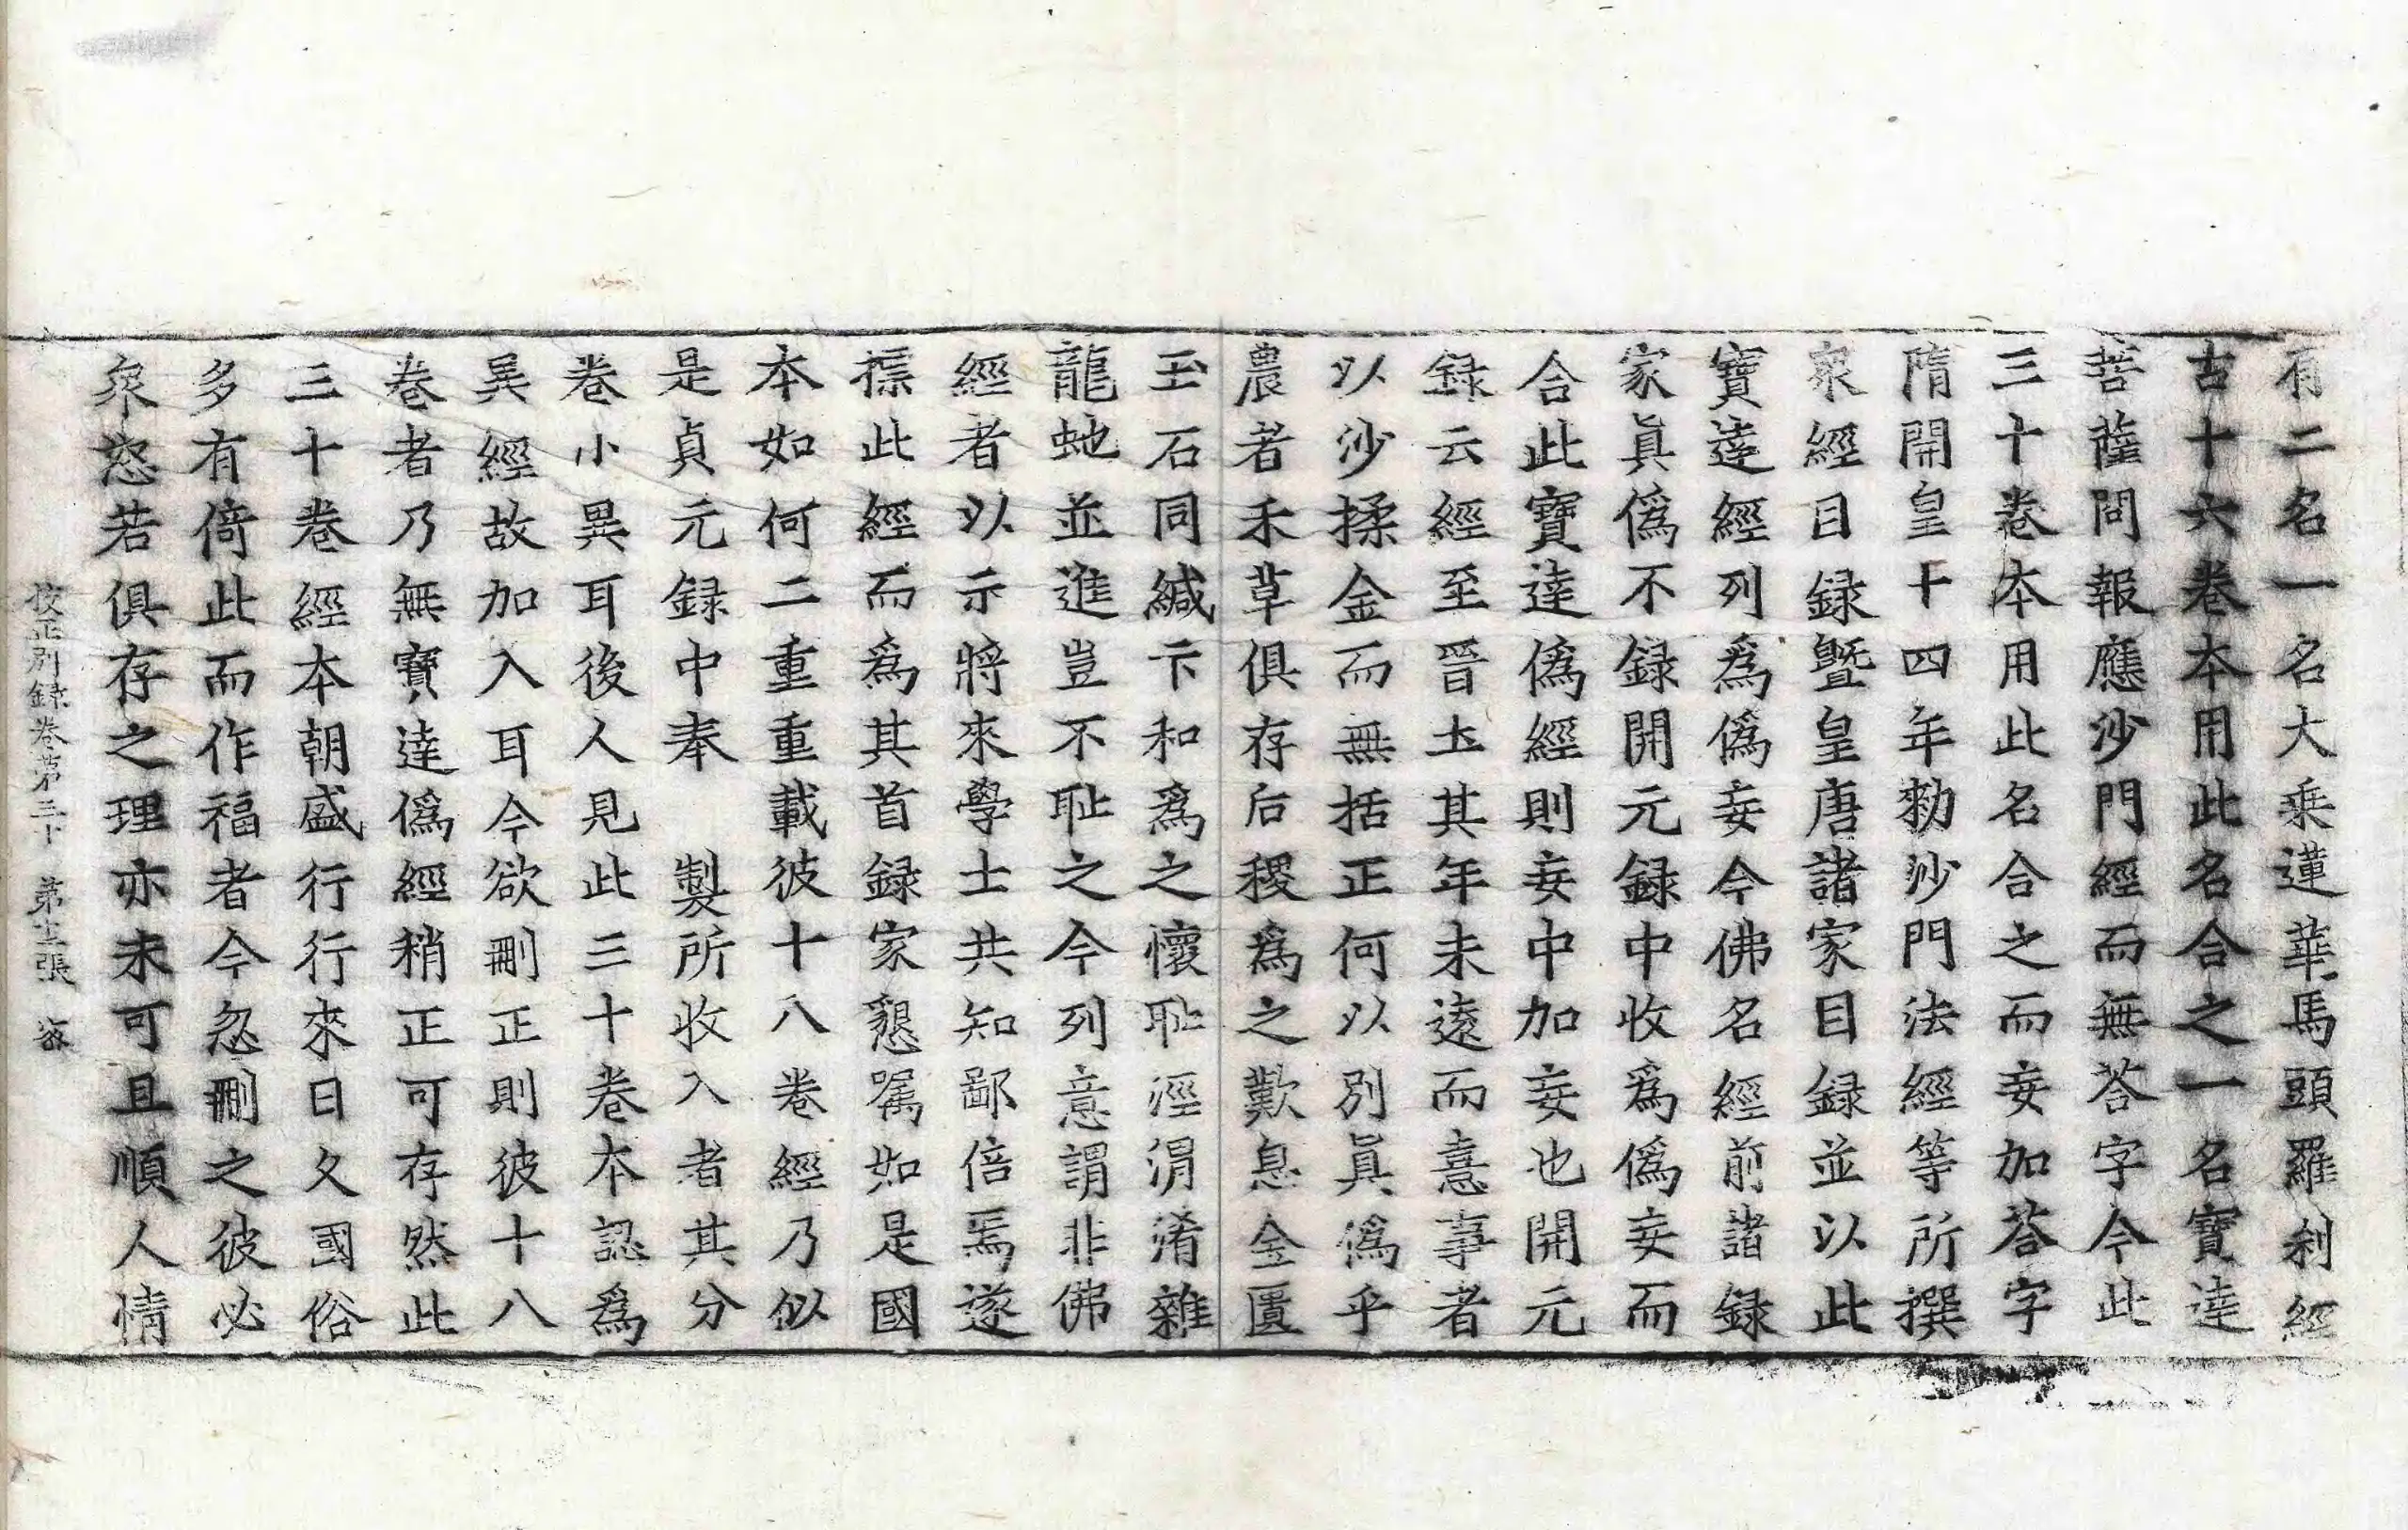 有二名一名大乘蓮華馬頭羅刹經
古十六卷本用此名合之一名寶達
菩薩問報應沙門經而無荅字今此
三十卷本用此名合之而妄加荅字
隋開皇十四年勑沙門法經等所撰
衆經目録曁皇唐諸家目録並以此
寶達經列爲僞妄今佛名經前諸録
家眞僞不録開元録中收爲僞妄而
合此寶達僞經則妄中加妄也開元
録云經至晉土其年未遠而憙事者
以沙揉金而無括正何以別眞僞乎
農者禾草俱存后稷爲之歎息金匱
玉石同緘卞和爲之懷耻涇渭淆雜
龍虵並進豈不耻之今列意謂非佛
經者以示將來學士共知鄙倍焉遂
摽此經而爲其首録家懇囑如是國
本如何二重重載彼十八卷經乃似
是貞元録中奉　製所收入者其分
卷小異耳後人見此三十卷本認爲
異經故加入耳今欲刪正則彼十八
卷者乃無寶達僞經稍正可存然此
三十卷經本朝盛行行來日久國俗
多有倚此而作福者今忽刪之彼必
衆怒若俱存之理亦未可且順人情
挍正別録卷苐三十　苐十二張